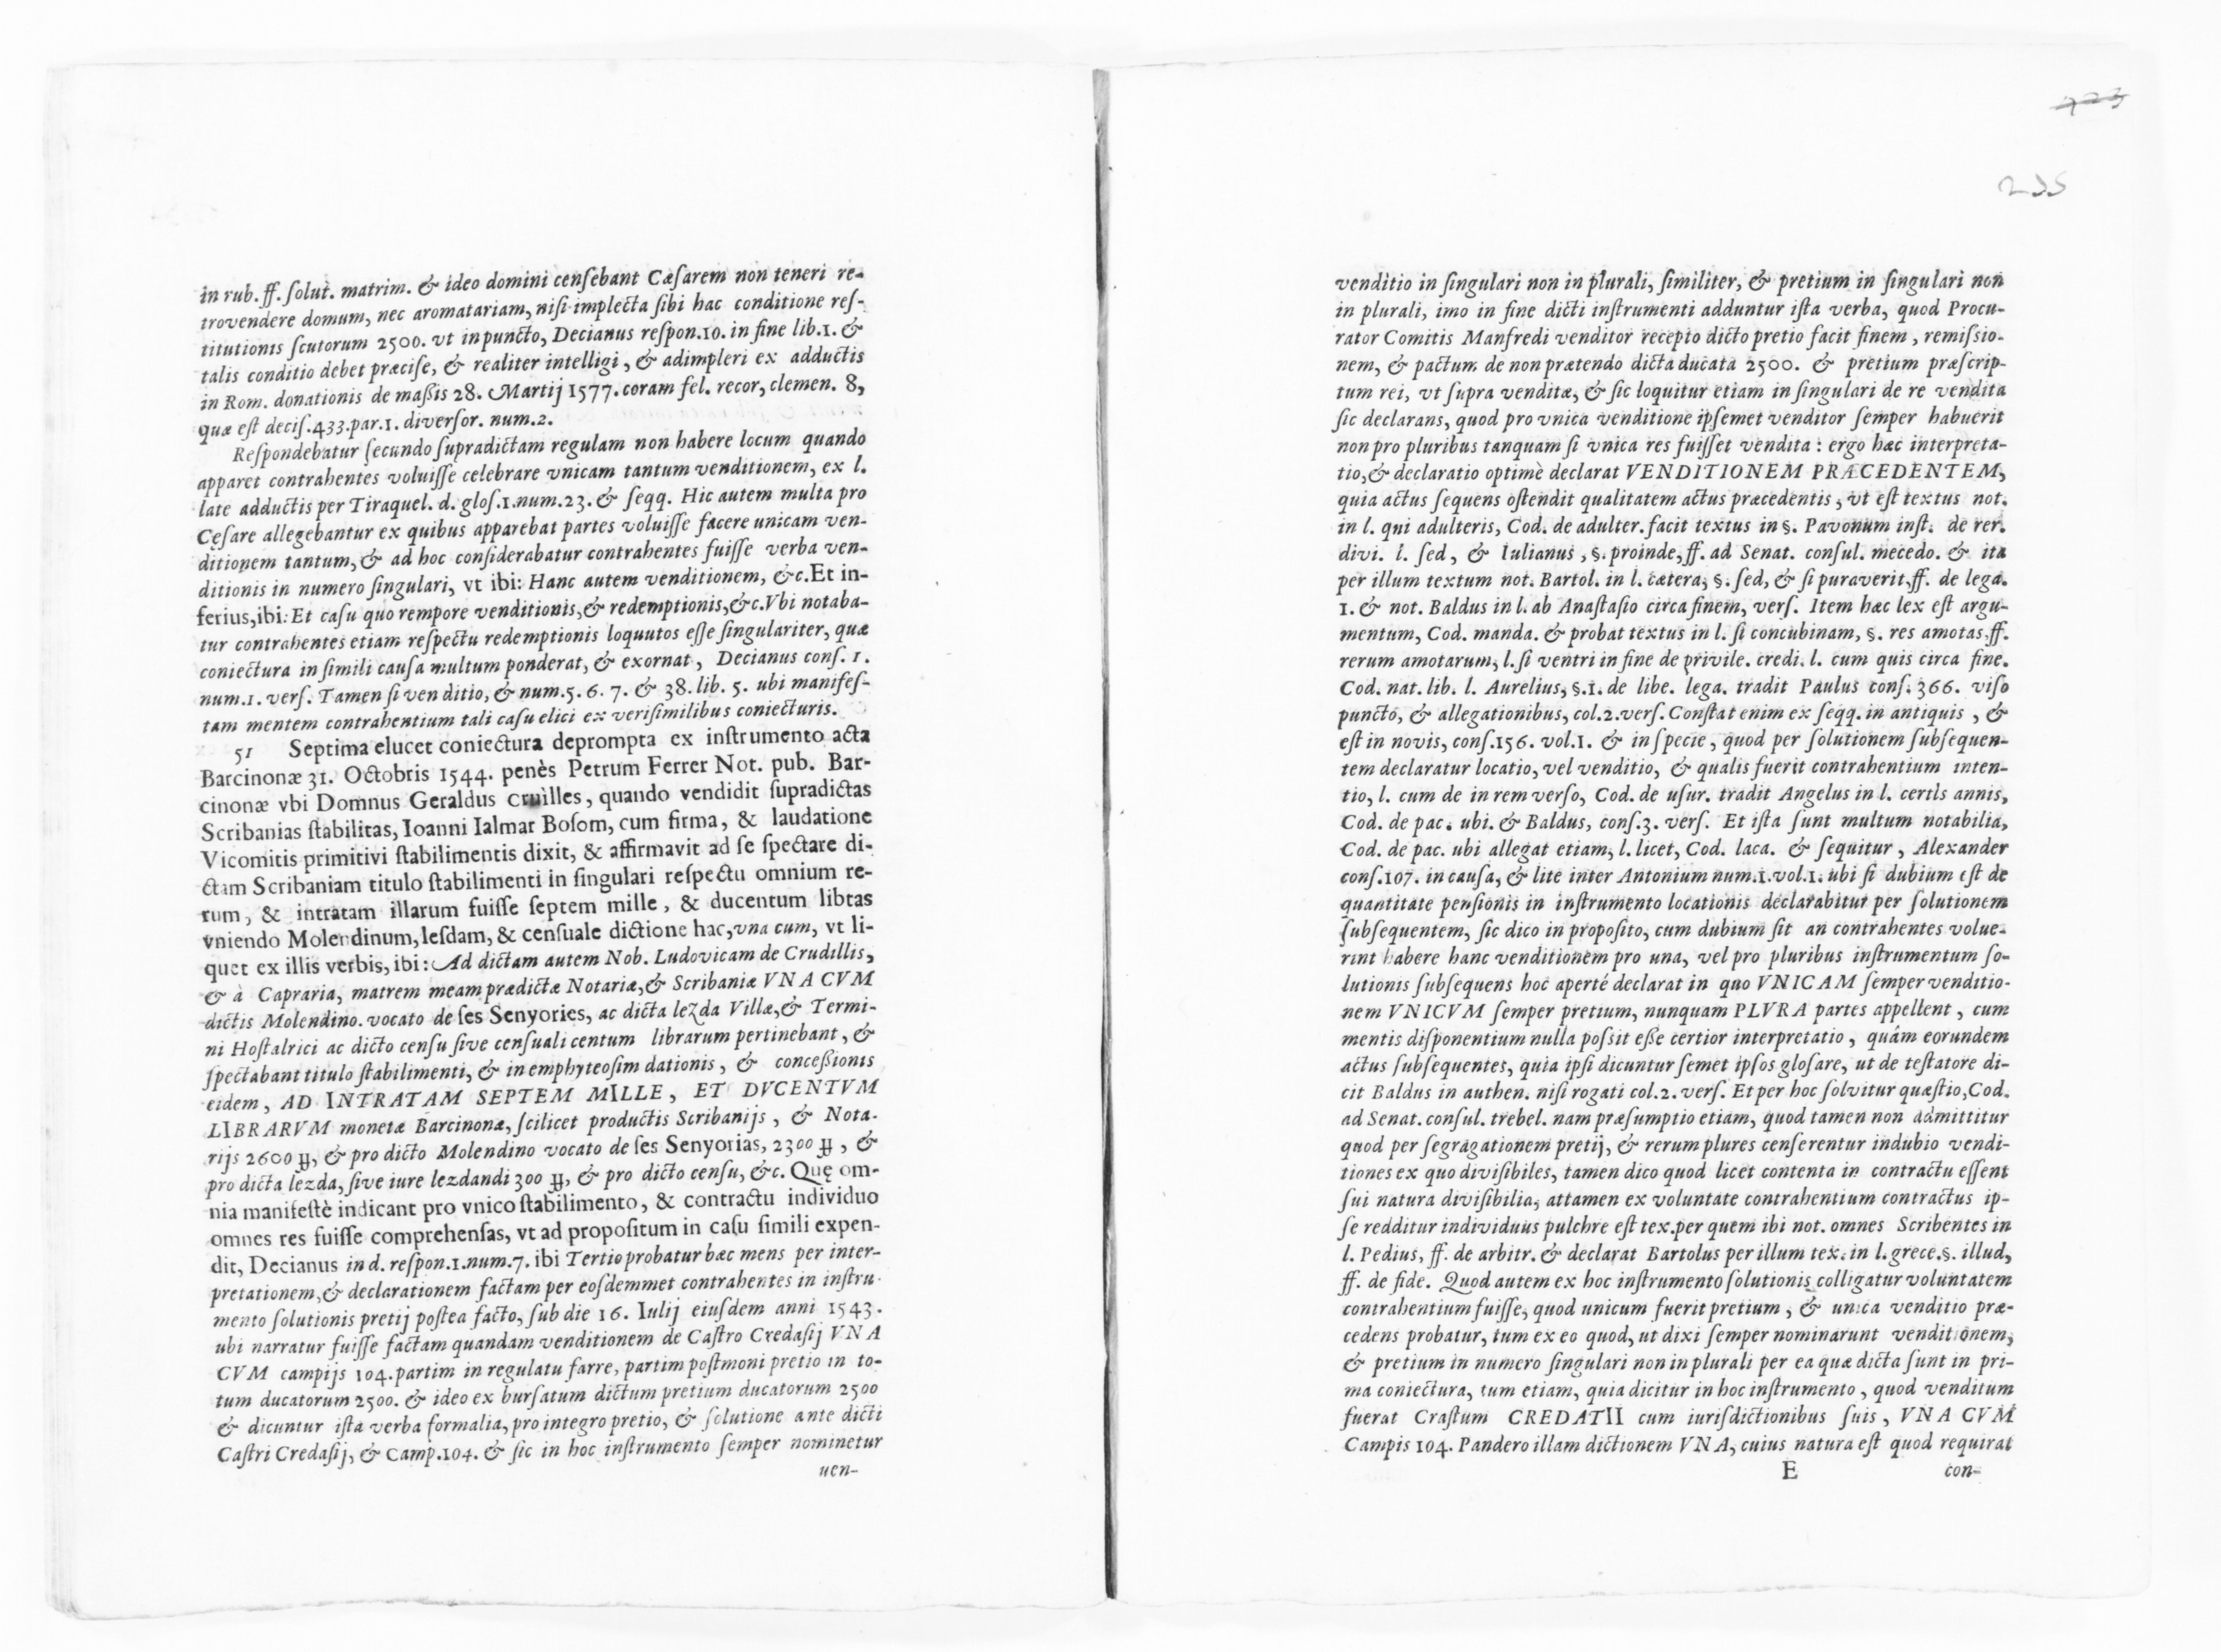 in rub. ff. ſolut. matrim. & ideo domini cenſebant Cæſarem non teneri re-
trovendere domum, nec aromatariam, niſi implecta ſibi hac conditione reſ-
titutionis ſcutorum 2500. vt in puncto, Decianus reſpon.10. in fine lib.1. &
talis conditio debet præciſe, & realiter intelligi, & adimpleri ex adductis
in Rom. donationis de maſsis 28. Martij 1577. coram fel. recor, clemen. 8,
quæ eſt deciſ.433.par.1. diverſor. num.2.
Reſpondebatur ſecundo ſupradictam regulam non habere locum quando
apparet contrahentes voluiſſe celebrare vnicam tantum venditionem, ex l.
late adductis per Tiraquel. d. gloſ.1.num.23. & ſeqq. Hic autem multa pro
Cęſare allegebantur ex quibus apparebat partes voluiſſe facere unicam ven-
ditionem tantum, & ad hoc conſiderabatur contrahentes fuiſſe verba ven-
ditionis in numero ſingulari, vt ibi: Hanc autem venditionem, &c. Et in-
ferius, ibi: Et caſu quo rempore venditionis, & redemptionis, &c. Vbi notaba-
tur contrahentes etiam reſpectu redemptionis loquutos eſſe ſingulariter, quæ
coniectura in ſimili cauſa multum ponderat, & exornat, Decianus conſ. 1.
num.1. verſ. Tamen ſi ven ditio, & num.5. 6. 7. & 38. lib. 5. ubi manifeſ-
tam mentem contrahentium tali caſu elici ex veriſimilibus coniecturis.
51 Septima elucet coniectura deprompta ex inſtrumento acta
Barcinonæ 31. Octobris 1544. penès Petrum Ferrer Not. pub. Bar-
cinonæ vbi Domnus Geraldus cruìlles, quando vendidit ſupradictas
Scribanias ſtabilitas, Ioanni Ialmar Boſom, cum firma, & laudatione
Vicomitis primitivi ſtabilimentis dixit, & affirmavit ad ſe ſpectare di-
ctam Scribaniam titulo ſtabilimenti in ſingulari reſpectu omnium re-
rum, & intratam illarum fuiſſe ſeptem mille, & ducentum libras
vniendo Molendinum, leſdam, & cenſuale dictione hac, vna cum, vt li-
quet ex illis verbis, ibi: Ad dictam autem Nob. Ludovicam de Crudillis,
& à Capraria, matrem meam prædictæ Notariæ, & Scribaniæ VNA CVM
dictis Molendino. vocato de ſes Senyories, ac dicta lezda Villæ, & Termi-
ni Hoſtalrici ac dicto cenſu ſive cenſuali centum librarum pertinebant, &
ſpectabant titulo ſtabilimenti, & in emphyteoſim dationis, & conceſsionis
eidem, AD INTRATAM SEPTEM MILLE, ET DVCENTVM
LIBRARVM monetæ Barcinonæ, ſcilicet productis Scribanijs, & Nota-
rijs 2600 ꝶ, & pro dicto Molendino vocato de ſes Senyorias, 2300 ꝶ, &
pro dicta lezda, ſive iure lezdandi 300 ꝶ, & pro dicto cenſu, &c. Quę om-
nia manifeſtè indicant pro vnico ſtabilimento, & contractu individuo
omnes res fuiſſe comprehenſas, vt ad propoſitum in caſu ſimili expen-
dit, Decianus in d. reſpon.1.num.7. ibi Tertio probatur hæc mens per inter-
pretationem, & declarationem factam per eoſdemmet contrahentes in inſtru-
mento ſolutionis pretij poſtea facto, ſub die 16. Iulij eiuſdem anni 1543.
ubi narratur fuiſſe factam quandam venditionem de Caſtro Credaſij VNA
CVM campijs 104. partim in regulatu farre, partim poſtmoni pretio in to-
tum ducatorum 2500. & ideo ex burſatum dictum pretium ducatorum 2500
& dicuntur iſta verba formalia, pro integro pretio, & ſolutione ante dicti
Caſtri Credaſij, & Camp.104. & ſic in hoc inſtrumento ſemper nominetur
uen-
235
venditio in ſingulari non in plurali, ſimiliter, & pretium in ſingulari non
in plurali, imo in fine dicti inſtrumenti adduntur iſta verba, quod Procu-
rator Comitis Manfredi venditor recepto dicto pretio facit finem, remiſsio-
nem, & pactum de non prætendo dicta ducata 2500. & pretium præſcrip-
tum rei, vt ſupra venditæ, & ſic loquitur etiam in ſingulari de re vendita
ſic declarans, quod pro vnica venditione ipſemet venditor ſemper habuerit
non pro pluribus tanquam ſi vnica res fuiſſet vendita: ergo hæc interpreta-
tio, & declaratio optimè declarat VENDITIONEM PRÆCEDENTEM,
quia actus ſequens oſtendit qualitatem actus præcedentis, vt eſt textus not.
in l. qui adulteris, Cod. de adulter. facit textus in §. Pavonum inſt. de rer.
divi. l. ſed, & Iulianus, §. proinde, ff. ad Senat. conſul. mecedo. & ita
per illum textum not. Bartol. in l. cætera, §. ſed, & ſi puraverit, ff. de lega.
1. & not. Baldus in l. ab Anaſtaſio circa finem, verſ. Item hæc lex eſt argu-
mentum, Cod. manda. & probat textus in l. ſi concubinam, §. res amotas, ff.
rerum amotarum, l. ſi ventri in fine de privile. credi. l. cum quis circa fine.
Cod. nat. lib. l. Aurelius, §.1. de libe. lega. tradit Paulus conſ. 366. viſo
puncto, & allegationibus, col.2. verſ. Conſtat enim ex ſeqq. in antiquis, &
eſt in novis, conſ.156. vol.1. & in ſpecie, quod per ſolutionem ſubſequen-
tem declaratur locatio, vel venditio, & qualis fuerit contrahentium inten-
tio, l. cum de in rem verſo, Cod. de uſur. tradit Angelus in l. certis annis,
Cod. de pac. ubi. & Baldus, conſ.3. verſ. Et iſta ſunt multum notabilia,
Cod. de pac. ubi allegat etiam, l. licet, Cod. laca. & ſequitur, Alexander
conſ.107. in cauſa, & lite inter Antonium num.1.vol.1. ubi ſi dubium eſt de
quantitate penſionis in inſtrumento locationis declarabitur per ſolutionem
ſubſequentem, ſic dico in propoſito, cum dubium ſit an contrahentes volue-
rint habere hanc venditionem pro una, vel pro pluribus inſtrumentum ſo-
lutionis ſubſequens hoc aperté declarat in quo VNICAM ſemper venditio-
nem VNICVM ſemper pretium, nunquam PLVRA partes appellent, cum
mentis diſponentium nulla poſsit eſſe certior interpretatio, quám eorundem
actus ſubſequentes, quia ipſi dicuntur ſemet ipſos gloſare, ut de teſtatore di-
cit Baldus in authen. niſi rogati col.2. verſ. Et per hoc ſolvitur quæſtio, Cod.
ad Senat. conſul. trebel. nam præſumptio etiam, quod tamen non admittitur
quod per ſegragationem pretij, & rerum plures cenſerentur indubio vendi-
tiones ex quo diviſibiles, tamen dico quod licet contenta in contractu eſſent
ſui natura diviſibilia, attamen ex voluntate contrahentium contractus ip-
ſe redditur individuus pulchre eſt tex. per quem ibi not. omnes Scribentes in
l. Pedius, ff. de arbitr. & declarat Bartolus per illum tex. in l. grece. §. illud,
ff. de fide. Quod autem ex hoc inſtrumento ſolutionis colligatur voluntatem
contrahentium fuiſſe, quod unicum fuerit pretium, & unica venditio præ-
cedens probatur, tum ex eo quod, ut dixi ſemper nominarunt venditionem,
& pretium in numero ſingulari non in plurali per ea quæ dicta ſunt in pri-
ma coniectura, tum etiam, quia dicitur in hoc inſtrumento, quod venditum
fuerat Craſtum CREDATII cum iuriſdictionibus ſuis, VNA CVM
Campis 104. Pandero illam dictionem VNA, cuius natura eſt quod requirat
E con-